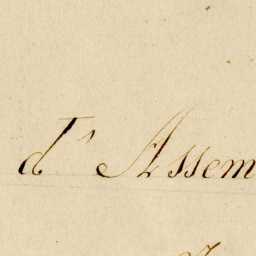 d' Assem